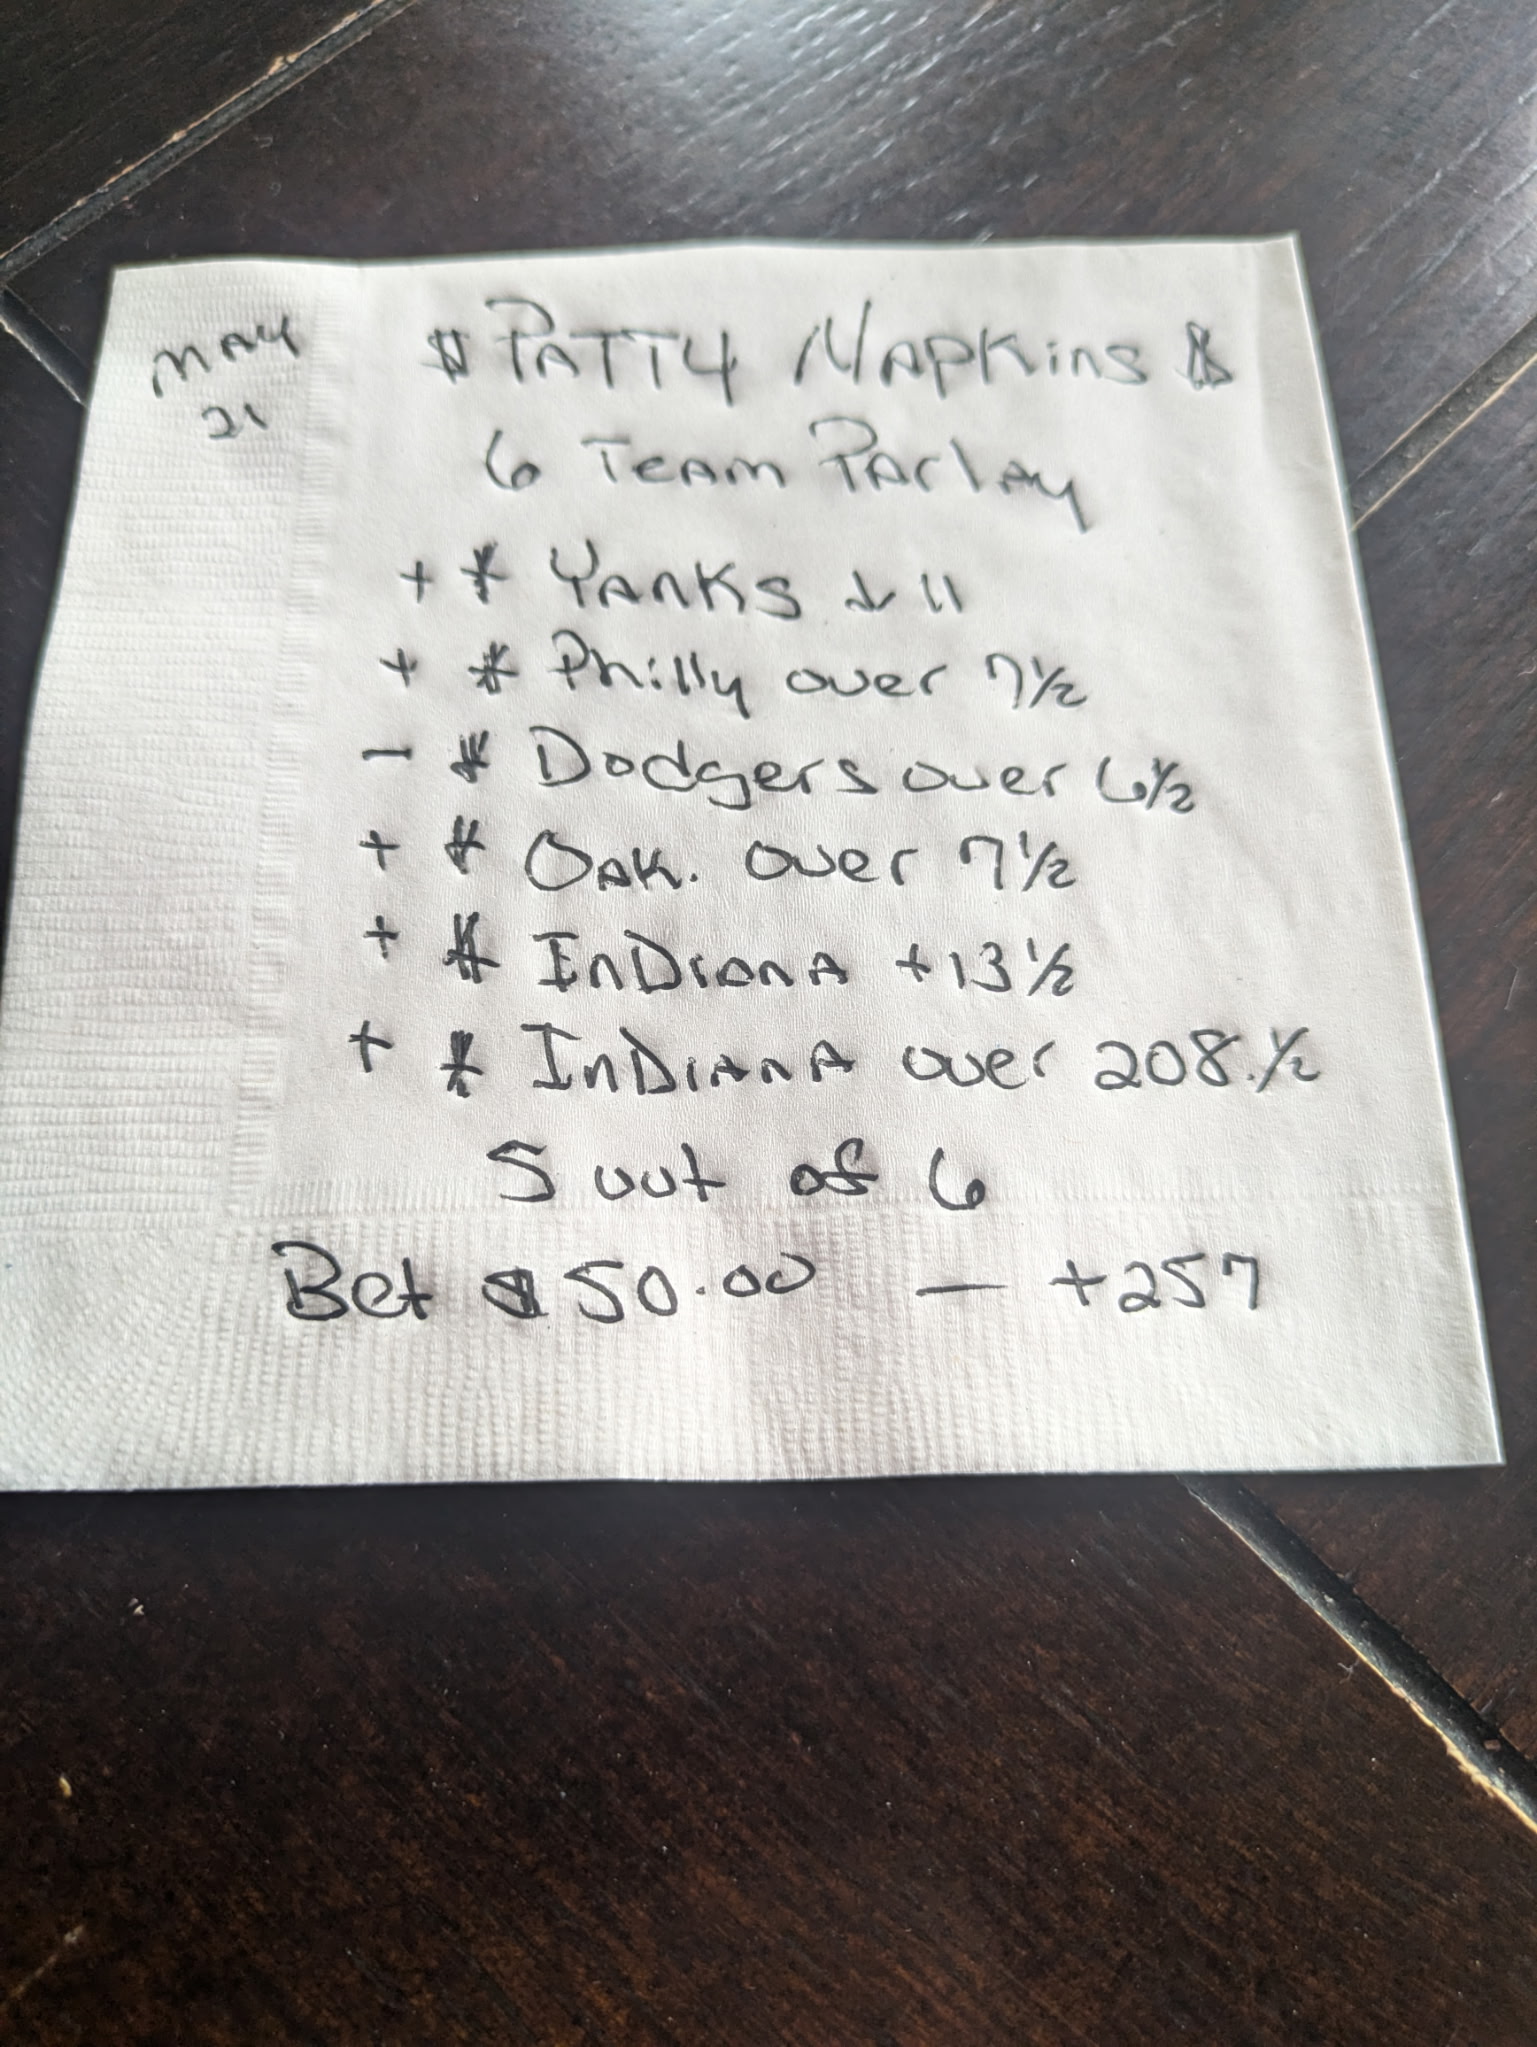 MAY
21
$ PATTY NAPKins $
6 TEAM PArlAy
+ * YAnKS ↓ 11
+ * Philly over 7 1/2
- * Dodgers over 6 1/2
+ * OAK. over 7 1/2
+ * InDianA +13 1/2
+ * InDiAnA over 208.1/2
5 out of 6
Bet $50.00 — +257